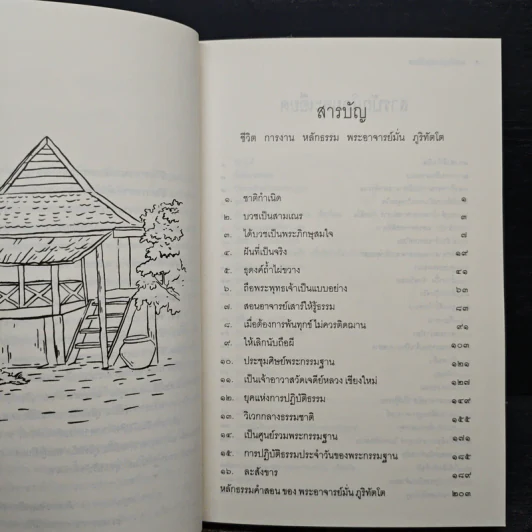 สารบัญ
ชีวิต การงาน หลักธรรม พระอาจารย์มั่น ภูริทัตโต
๑. ชาติกำเนิด ๑
๒. บวชเป็นสามเณร ๗
๓. ได้บวชเป็นพระภิกษุสมใจ
๔. ฝันที่เป็นจริง ๑๙
๕. ธุดงค์ถ้ำไผ่ขวาง ๓๑
๖. ถือพระพุทธเจ้าเป็นแบบอย่าง
๗. สอนอาจารย์เสาร์ให้รู้ธรรม
๘. เมื่อต้องการพ้นทุกข์ ไม่ควรติดฌาน ๙๑
๙. ให้เลิกนับถือผี
๑๐. ประชุมศิษย์พระกรรมฐาน ๑๒๑
๑๑. เป็นเจ้าอาวาสวัดเจดีย์หลวง เชียงใหม่
๑๒. ยุคแห่งการปฏิบัติธรรม ๑๔๙
๑๓. วิเวกกลางธรรมชาติ ๑๕๕
๑๔. เป็นศูนย์รวมพระกรรมฐาน ๑๗๑
๑๕. การปฏิบัติธรรมประจำวันของพระกรรมฐาน ๑๘๕
๑๖. ละสังขาร ๑๘๙
หลักธรรมคำสอน ของ พระอาจารย์มั่น ภูริทัตโต ๒๐๓